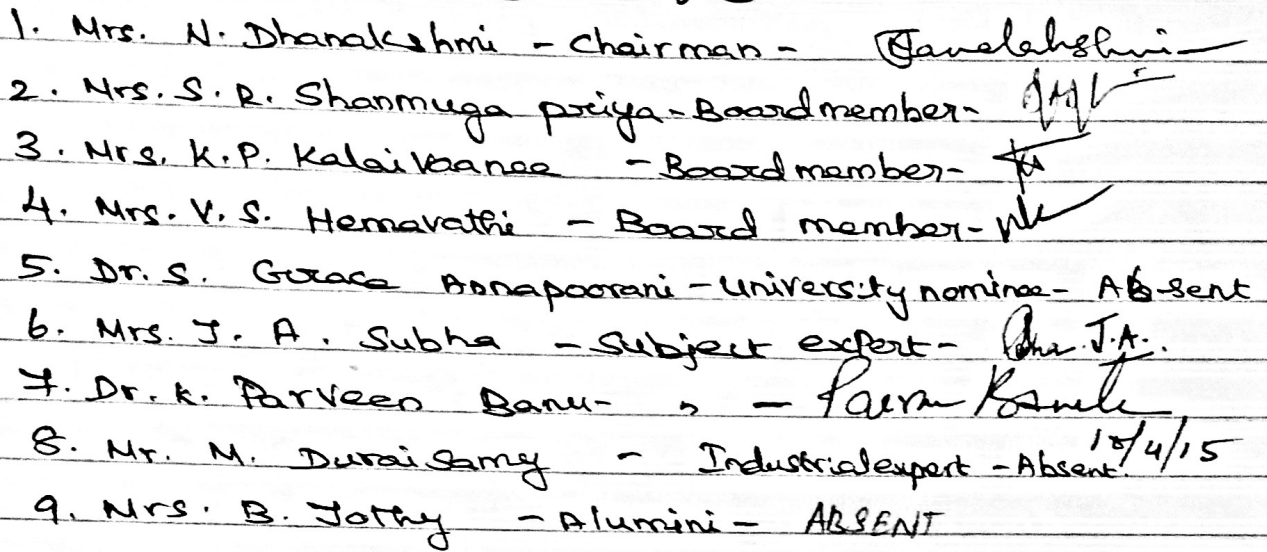 1. Mrs. N. Dhanalakshmi - Chairman - Danalakshmi
2. Mrs. S. R. Shanmuga priya - Board member -
3. Mrs. K. P. Kalaivaanee - Board member -
4. Mrs. V. S. Hemavathi - Board member -
5. Dr. S. Grace Annapoorani - University nominee - Absent
6. Mrs. J. A. Subha - Subject expert - J.A.
7. Dr. K. Parveen Banu - " - Parveen Banu
8. Mr. M. Duraisamy - Industrial expert - Absent /4/15
9. Mrs. B. Jothy - Alumini - ABSENT